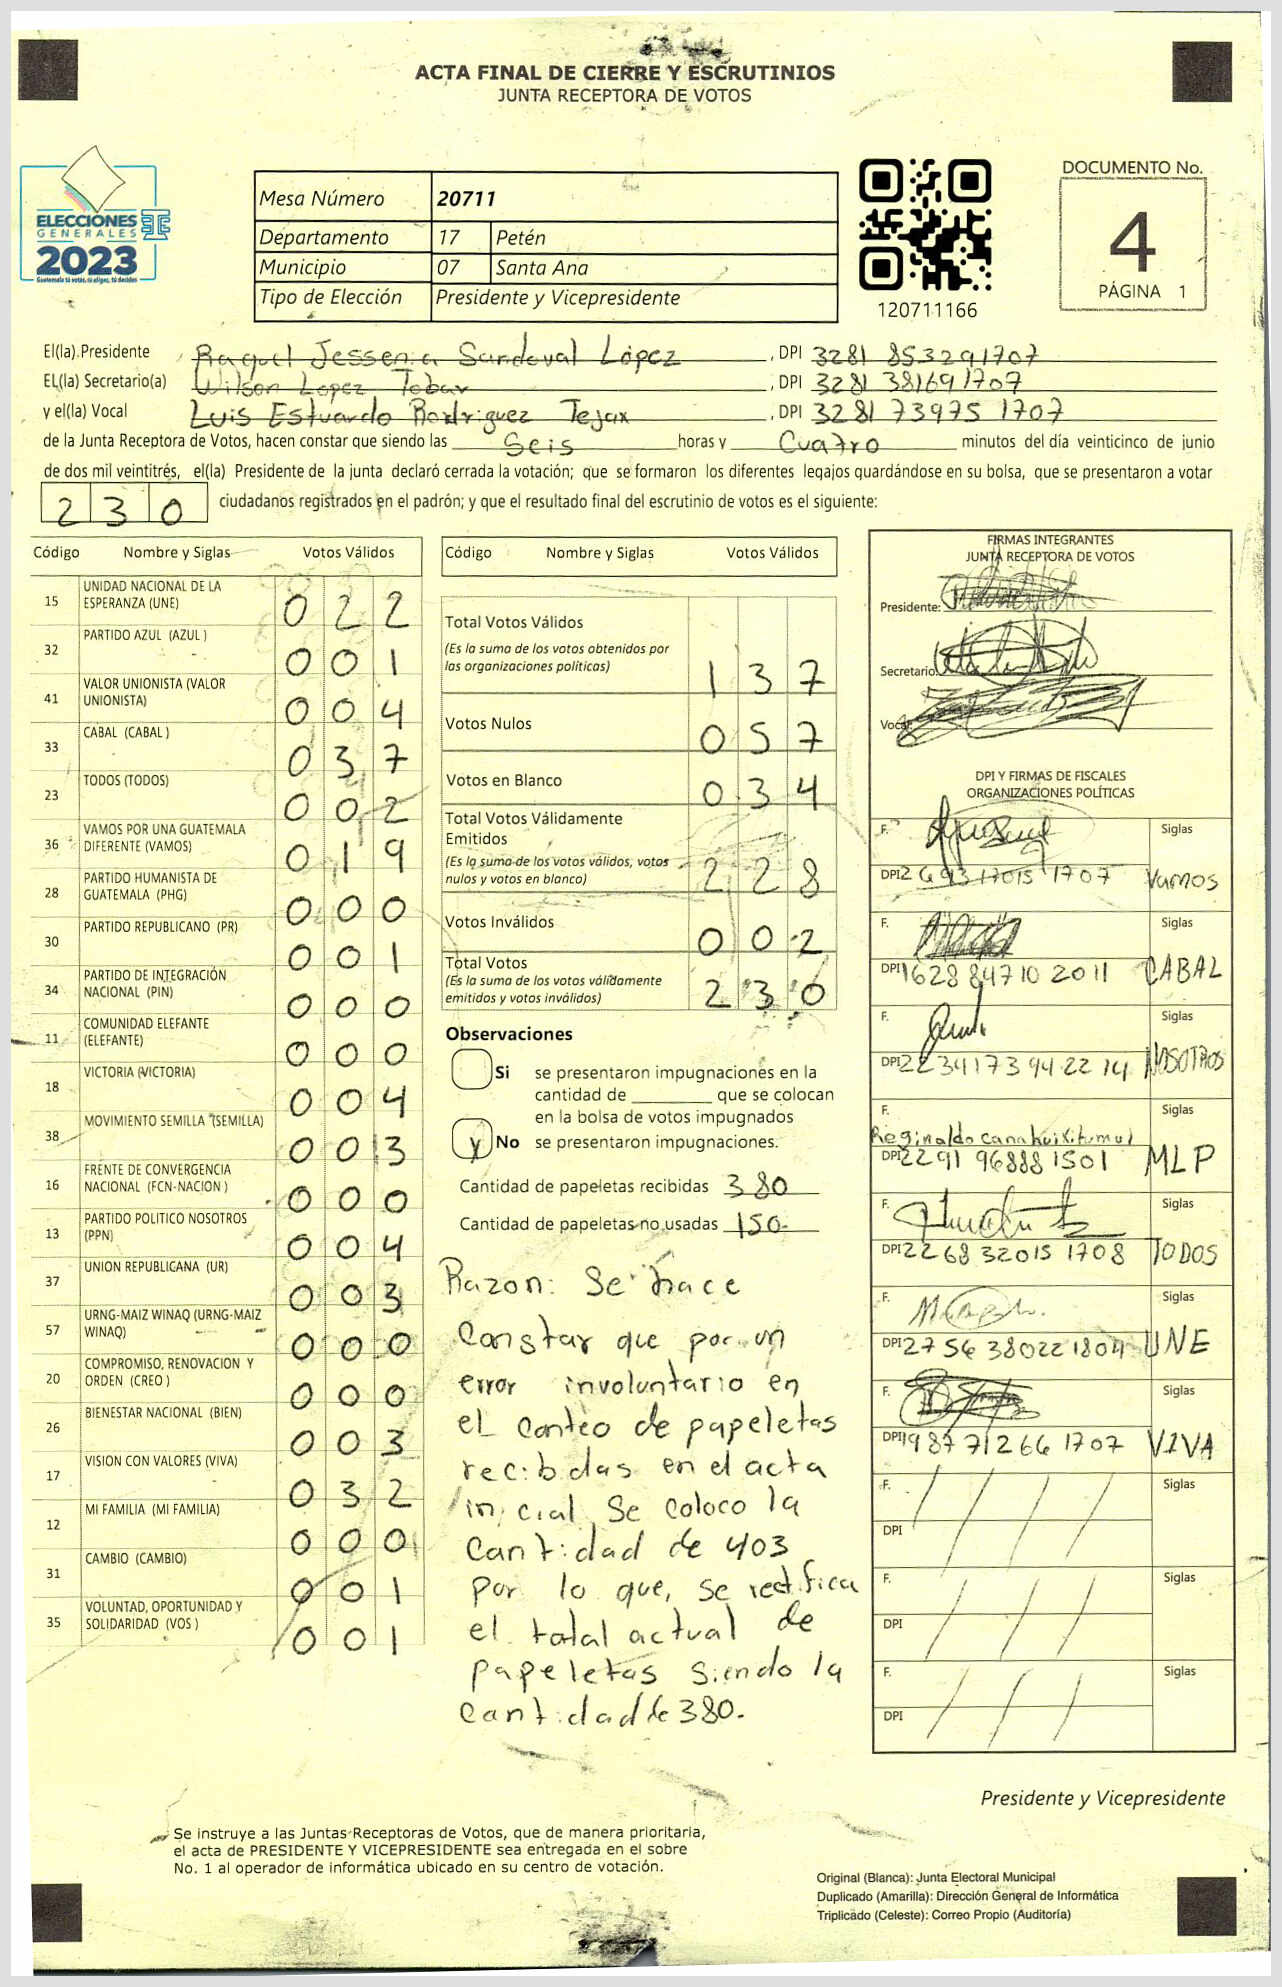 ACTA FINAL DE CIERRE Y ESCRUTINIOS
JUNTA RECEPTORA DE VOTOS
ELECCIONES
GENERALES
2023
Guatemala tú votas, tú eliges, tú decides
Mesa Número 20711
Departamento 17 Petén
Municipio 07 Santa Ana
Tipo de Elección Presidente y Vicepresidente
120711166
DOCUMENTO No.
4
PÁGINA 1
El(la) Presidente Raquel Jessenia Sandoval López , DPI 3281 85329 1707
EL(la) Secretario(a) Wilson Lopez Tobar , DPI 3281 38169 1707
y el(la) Vocal Luis Estuardo Rodriguez Tejax , DPI 3281 73975 1707
de la Junta Receptora de Votos, hacen constar que siendo las Seis horas y Cuatro minutos del día veinticinco de junio
de dos mil veintitrés, el(la) Presidente de la junta declaró cerrada la votación; que se formaron los diferentes legajos guardándose en su bolsa, que se presentaron a votar
230 ciudadanos registrados en el padrón; y que el resultado final del escrutinio de votos es el siguiente:
Código Nombre y Siglas Votos Válidos
15 UNIDAD NACIONAL DE LA ESPERANZA (UNE) 022
32 PARTIDO AZUL (AZUL ) 001
41 VALOR UNIONISTA (VALOR UNIONISTA) 004
33 CABAL (CABAL ) 037
23 TODOS (TODOS) 002
36 VAMOS POR UNA GUATEMALA DIFERENTE (VAMOS) 019
28 PARTIDO HUMANISTA DE GUATEMALA (PHG) 000
30 PARTIDO REPUBLICANO (PR) 001
34 PARTIDO DE INTEGRACIÓN NACIONAL (PIN) 000
11 COMUNIDAD ELEFANTE (ELEFANTE) 000
18 VICTORIA (VICTORIA) 004
38 MOVIMIENTO SEMILLA (SEMILLA) 003
16 FRENTE DE CONVERGENCIA NACIONAL (FCN-NACION ) 000
13 PARTIDO POLITICO NOSOTROS (PPN) 004
37 UNION REPUBLICANA (UR) 003
57 URNG-MAIZ WINAQ (URNG-MAIZ WINAQ) 000
20 COMPROMISO, RENOVACION Y ORDEN (CREO ) 000
26 BIENESTAR NACIONAL (BIEN) 003
17 VISION CON VALORES (VIVA) 032
12 MI FAMILIA (MI FAMILIA) 000
31 CAMBIO (CAMBIO) 001
35 VOLUNTAD, OPORTUNIDAD Y SOLIDARIDAD (VOS ) 001
Código Nombre y Siglas Votos Válidos
Total Votos Válidos 137
(Es la suma de los votos obtenidos por
las organizaciones políticas)
Votos Nulos 057
Votos en Blanco 034
Total Votos Válidamente
Emitidos 228
(Es la suma de los votos válidos, votos
nulos y votos en blanco)
Votos Inválidos 002
Total Votos 230
(Es la suma de los votos válidamente
emitidos y votos inválidos)
Observaciones
Si se presentaron impugnaciones en la
cantidad de ________ que se colocan
en la bolsa de votos impugnados
No se presentaron impugnaciones.
Cantidad de papeletas recibidas 380
Cantidad de papeletas no usadas 150-
Razon: Se hace
Constar que por un
error involuntario en
el Conteo de papeletas
recibidas en el acta
inicial Se coloco la
Cantidad de 403
por lo que, se rectifica
el total actual de
papeletas Siendo la
Cantidad de 380.
FIRMAS INTEGRANTES
JUNTA RECEPTORA DE VOTOS
Presidente:
Secretario:
Vocal:
DPI Y FIRMAS DE FISCALES
ORGANIZACIONES POLÍTICAS
F. Siglas
DPI 2693 17015 1707 Vamos
F. Siglas
DPI 1628 84710 2011 CABAL
F. Siglas
DPI 2234 17394 2214 NOSOTROS
F. Siglas
DPI 2291 96888 1501 MLP
F. Siglas
DPI 2268 32015 1708 TODOS
F. Siglas
DPI 2756 38022 1804 UNE
F. Siglas
DPI 1987 71266 1707 VIVA
F. Siglas
DPI
F. Siglas
DPI
F. Siglas
DPI
Presidente y Vicepresidente
Se instruye a las Juntas Receptoras de Votos, que de manera prioritaria,
el acta de PRESIDENTE Y VICEPRESIDENTE sea entregada en el sobre
No. 1 al operador de informática ubicado en su centro de votación.
Original (Blanca): Junta Electoral Municipal
Duplicado (Amarilla): Dirección General de Informática
Triplicado (Celeste): Correo Propio (Auditoría)